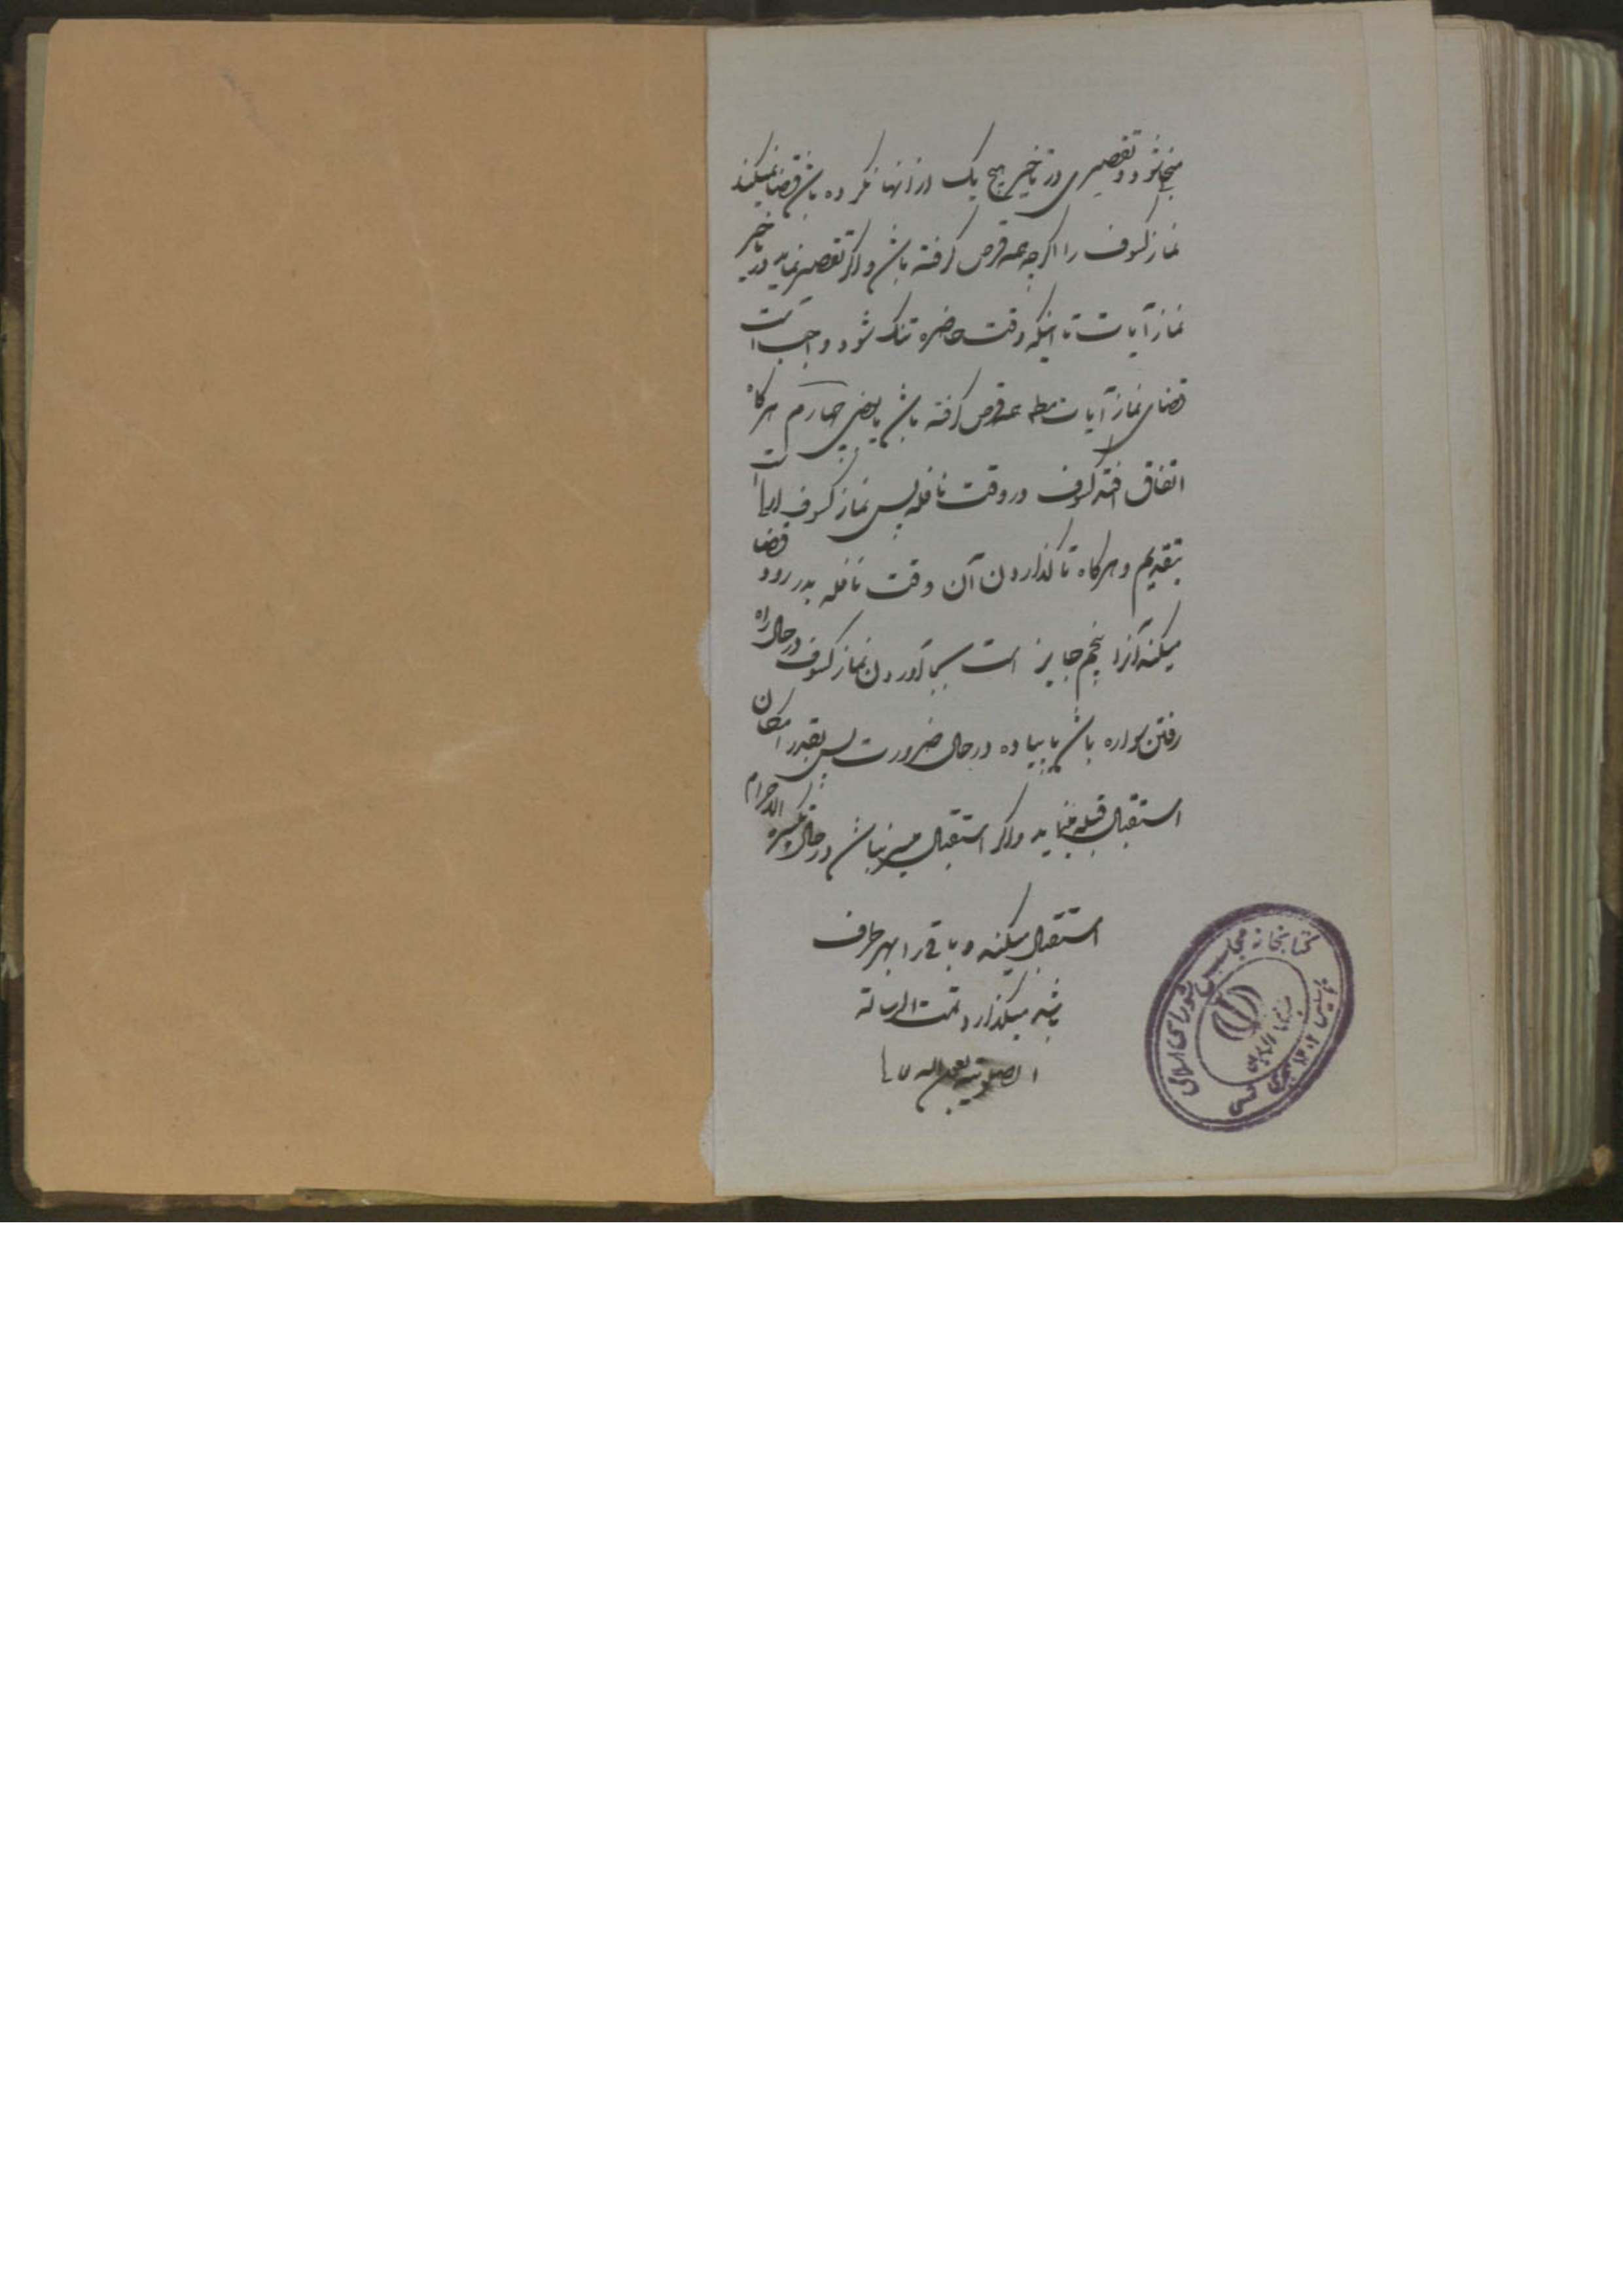 میشود و تقصیری در تأخیر هیچ یک از انها نکرده باشد قضا نمیکند
نماز کسوف را اگرچه همه قرص گرفته باشد و اگر تقصیر نماید در تأخیر
نماز آیات تا اینکه وقت حاضره تنک شود واجب است
قضای نماز آیات مط همه قرص گرفته باشد یا بعضی چهارم هرگاه
اتفاق افتد کسوف در وقت نافله پس نماز کسوف را
بتقدیم و هرگاه تا گذاردن آن وقت نافله بدر رود قضا
میکند آنرا پنجم جایز است بجا آوردن نماز کسوف در حال راه
رفتن سواره باشد یا پیاده در حال ضرورت پس بقدر امکان
استقبال قبله مینماید و اگر استقبال میسر نباشد در حال تکبیرة الاحرام
استقبال میکند و باقی را بهر طرف
باشد میگذارد تمت الرسالة
الصلوتیه بعون الله
کتابخانه مجلس شورای اسلامی
تأسیس ۱۳۰۲ هجری شمسی